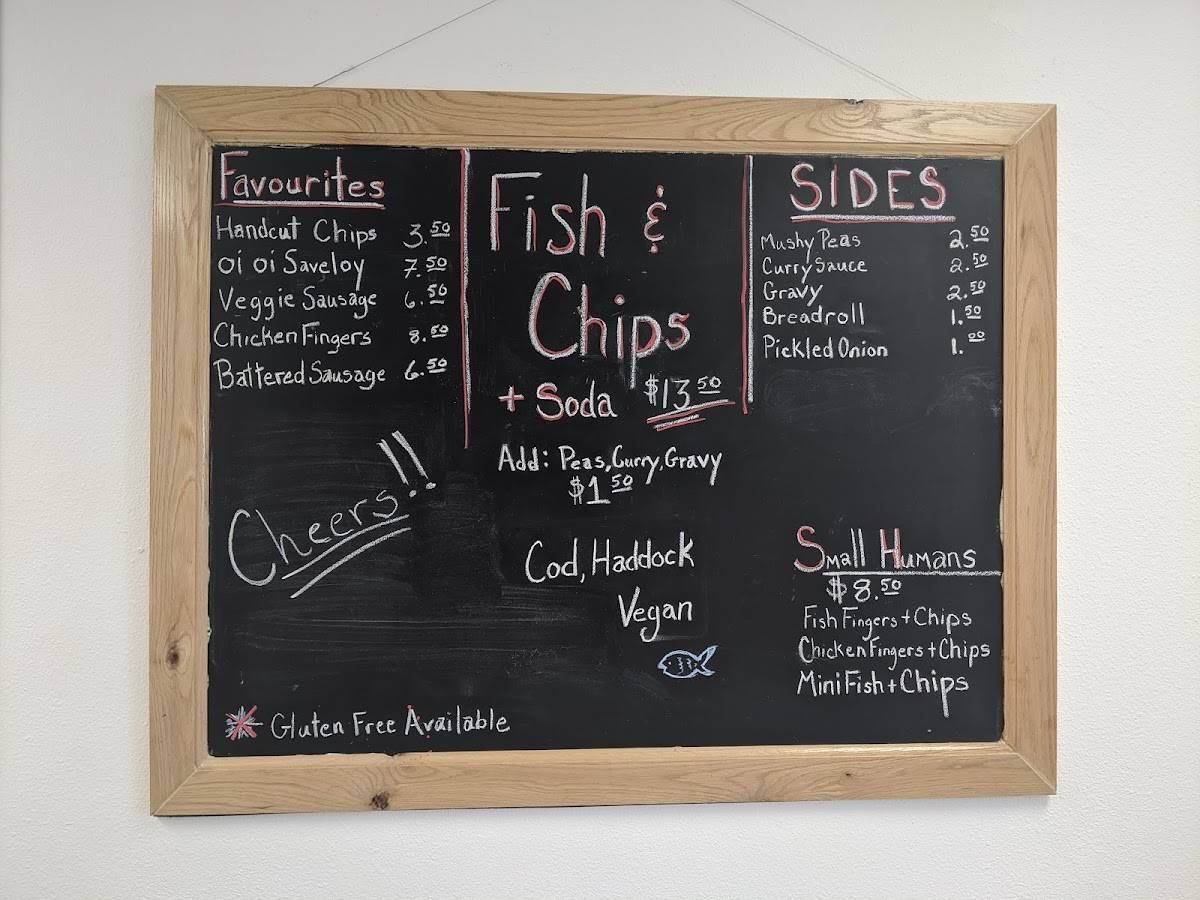 Favourites
Handcut Chips 3.50
oi oi Saveloy 7.50
Veggie Sausage 6.50
Chicken Fingers 8.50
Battered Sausage 6.50
Cheers!!
Gluten Free Available
Fish &
Chips
+ Soda $13.50
Add: Peas, Curry, Gravy
$1.50
Cod, Haddock
Vegan
SIDES
Mushy Peas 2.50
Curry Sauce 2.50
Gravy 2.50
Breadroll 1.50
Pickled Onion 1.00
Small Humans
$8.50
Fish Fingers + Chips
Chicken Fingers + Chips
Mini Fish + Chips